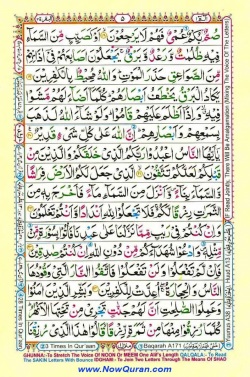 ۵
صُمٌّۢ بُكْمٌ عُمْىٌ فَهُمْ لَا يَرْجِعُوْنَ اَوْ كَصَيِّبٍ مِّنَ السَّمَآءِ
فِيْهِ ظُلُمٰتٌ وَّرَعْدٌ وَّبَرْقٌ يَجْعَلُوْنَ اَصَابِعَهُمْ فِىْٓ اٰذَانِهِمْ
مِّنَ الصَّوَاعِقِ حَذَرَ الْمَوْتِ وَاللّٰهُ مُحِيْطٌۢ بِالْكٰفِرِيْنَ
يَكَادُ الْبَرْقُ يَخْطَفُ اَبْصَارَهُمْ كُلَّمَآ اَضَآءَ لَهُمْ مَّشَوْا
فِيْهِ وَاِذَآ اَظْلَمَ عَلَيْهِمْ قَامُوْا وَلَوْ شَآءَ اللّٰهُ لَذَهَبَ
بِسَمْعِهِمْ وَاَبْصَارِهِمْ اِنَّ اللّٰهَ عَلٰى كُلِّ شَىْءٍ قَدِيْرٌ
يٰٓاَيُّهَا النَّاسُ اعْبُدُوْا رَبَّكُمُ الَّذِىْ خَلَقَكُمْ وَالَّذِيْنَ مِنْ
قَبْلِكُمْ لَعَلَّكُمْ تَتَّقُوْنَ الَّذِىْ جَعَلَ لَكُمُ الْاَرْضَ فِرَاشًا
وَّالسَّمَآءَ بِنَآءً وَّاَنْزَلَ مِنَ السَّمَآءِ مَآءً فَاَخْرَجَ بِهٖ مِنَ
الثَّمَرٰتِ رِزْقًا لَّكُمْ فَلَا تَجْعَلُوْا لِلّٰهِ اَنْدَادًا وَّاَنْتُمْ تَعْلَمُوْنَ
وَاِنْ كُنْتُمْ فِىْ رَيْبٍ مِّمَّا نَزَّلْنَا عَلٰى عَبْدِنَا فَاْتُوْا بِسُوْرَةٍ مِّنْ
مِّثْلِهٖ وَادْعُوْا شُهَدَآءَكُمْ مِّنْ دُوْنِ اللّٰهِ اِنْ كُنْتُمْ صٰدِقِيْنَ
فَاِنْ لَّمْ تَفْعَلُوْا وَلَنْ تَفْعَلُوْا فَاتَّقُوا النَّارَ الَّتِىْ وَقُوْدُهَا
النَّاسُ وَالْحِجَارَةُ اُعِدَّتْ لِلْكٰفِرِيْنَ
Times In Qur'aan
Baqarah A171
GHUNNA:-To Stretch The Voice Of NOON Or MEEM One Alif's Length QALQALA:- To Read
The SAKIN Letters With Bounce IDGHAM:- To Join Two Letters Through The Means Of SHAD
www.NowQuran.com